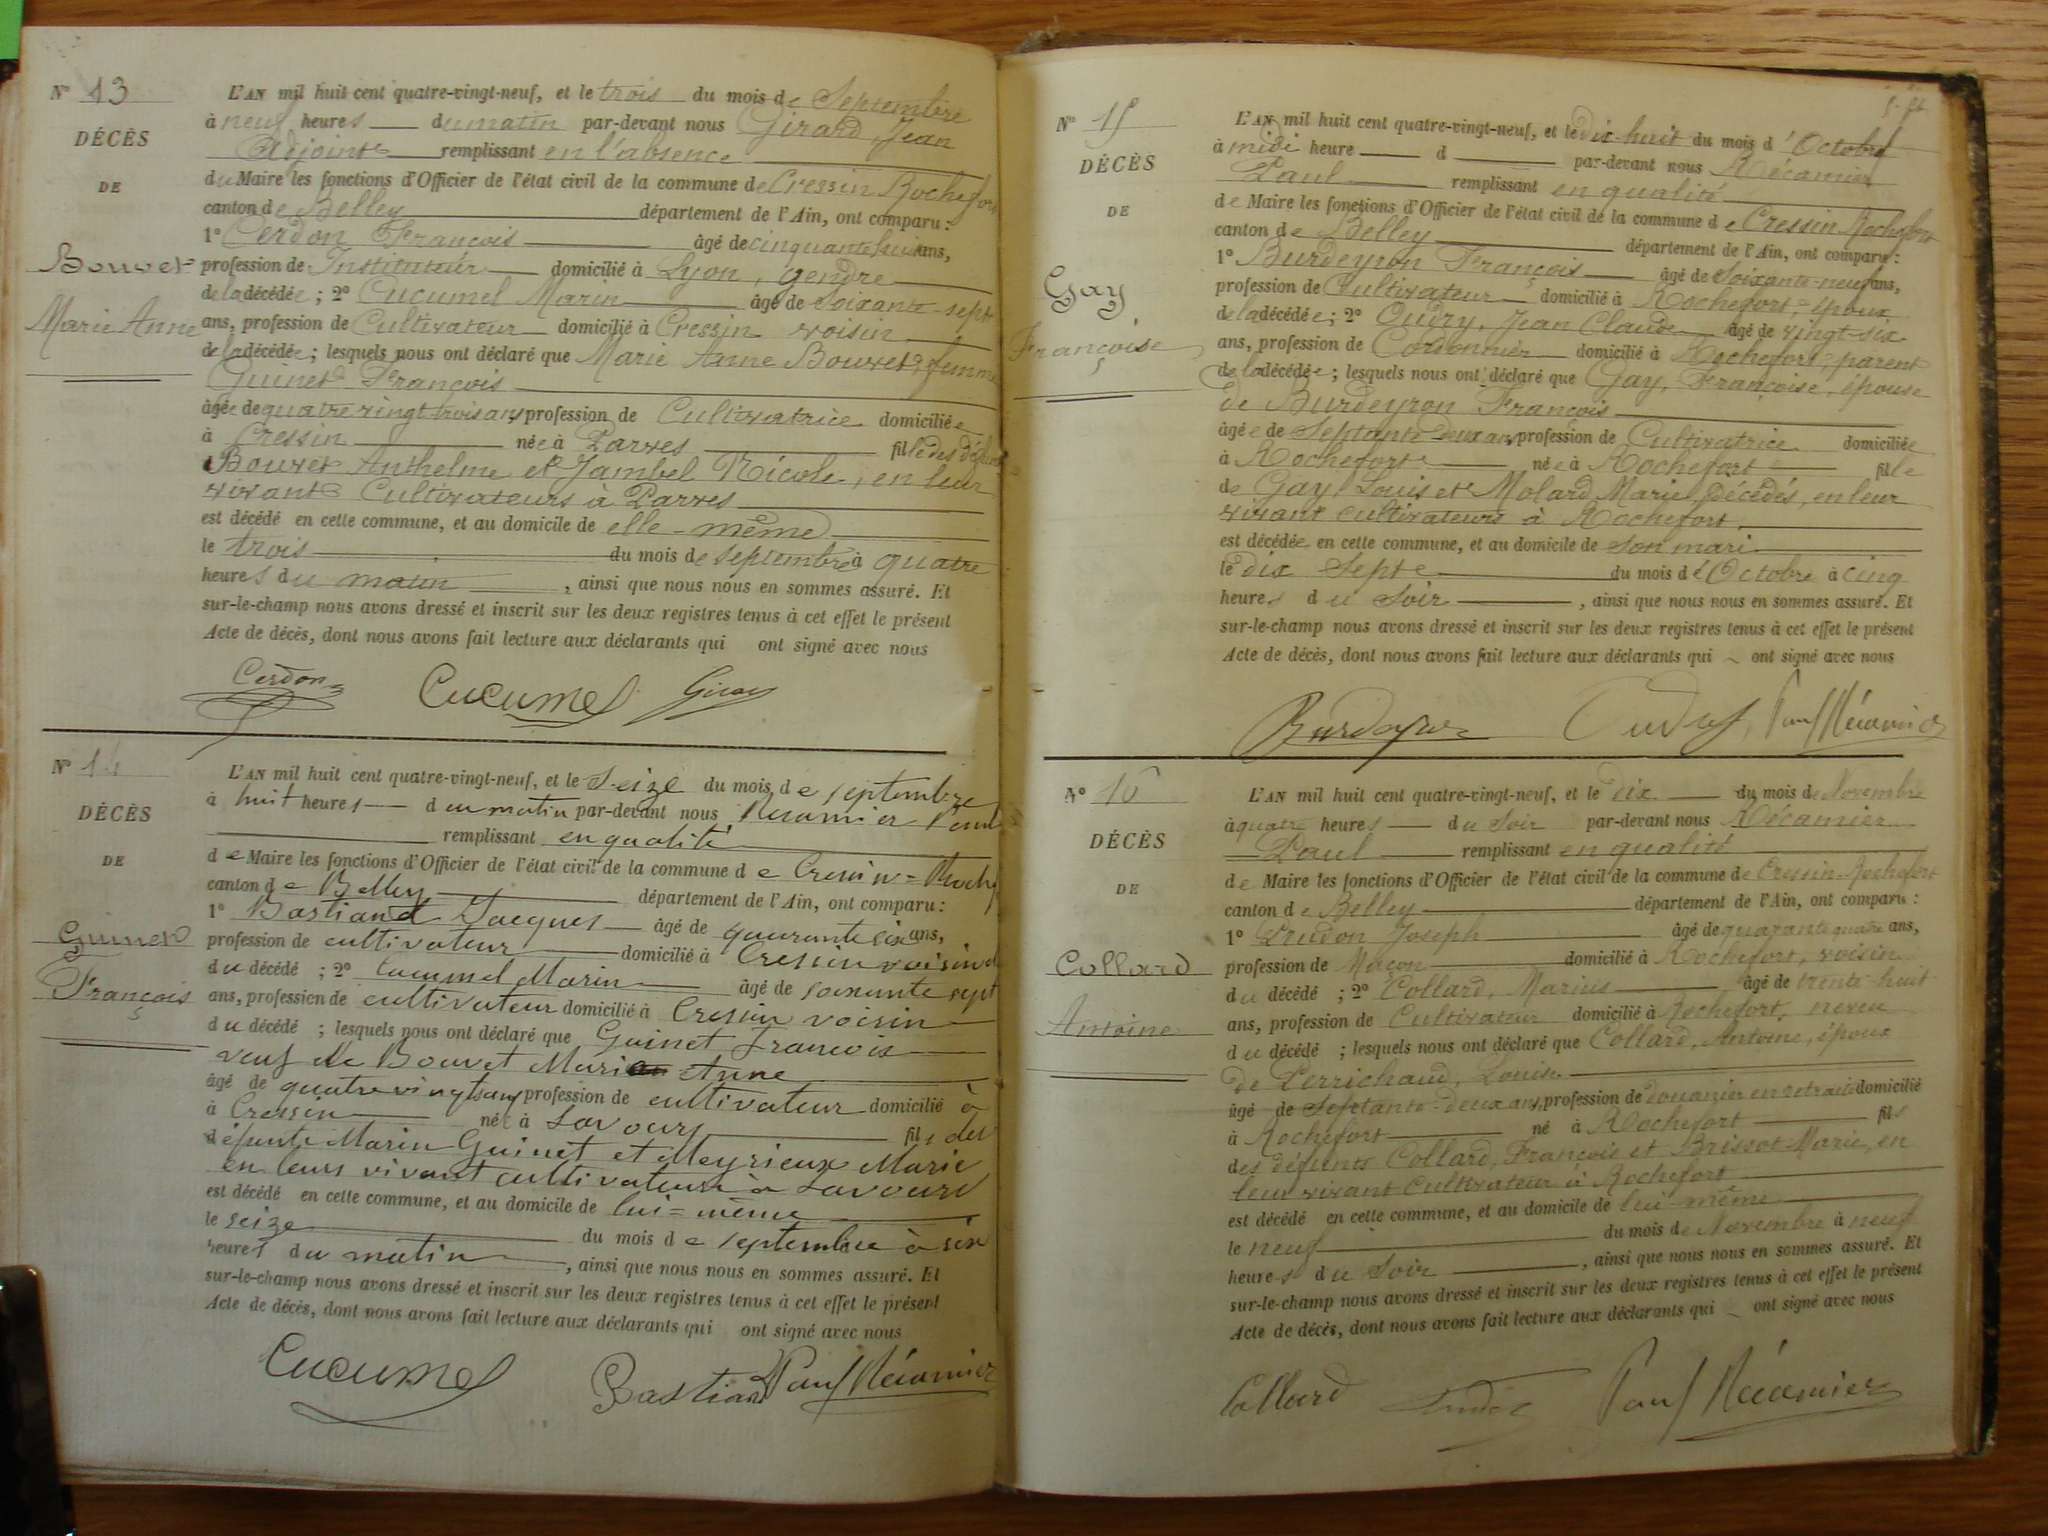 N° 13
DÉCÈS
DE
Bouvet
Marie Anne
L'AN mil huit cent quatre-vingt-neuf, et le trois du mois de Septembre
à neuf heures du matin par-devant nous Girard, Jean
Adjoint remplissant en l'absence
du Maire les fonctions d'Officier de l'état civil de la commune de Cressin Rochefort
canton de Belley département de l'Ain, ont comparu :
1° Cerdon François âgé de cinquante huit ans,
profession de Instituteur domicilié à Lyon, gendre
de la décédée ; 2° Cucumel Marin âgé de Soixante-sept
ans, profession de Cultivateur domicilié à Cressin voisin
de la décédée ; lesquels nous ont déclaré que Marie Anne Bouvet, femme
Guinet François
âgée de quatre vingt trois ans, profession de Cultivatrice domiciliée
à Cressin née à Parves fille des défunts
Bouvet Anthelme et Jambel Nicole, en leur
vivant Cultivateurs à Parves
est décédé en cette commune, et au domicile de elle-même
le trois du mois de septembre à quatre
heures du matin, ainsi que nous nous en sommes assuré. Et
sur-le-champ nous avons dressé et inscrit sur les deux registres tenus à cet effet le présent
Acte de décès, dont nous avons fait lecture aux déclarants qui ont signé avec nous
Cerdon Cucumel Girard
N° 14
DÉCÈS
DE
Guinet
François
L'AN mil huit cent quatre-vingt-neuf, et le Seize du mois de septembre
à huit heures du matin par-devant nous Récamier Paul
remplissant en qualité
de Maire les fonctions d'Officier de l'état civil de la commune de Cressin=Rochef
canton de Belley département de l'Ain, ont comparu :
1° Bastiand Jacques âgé de quarante six ans,
profession de cultivateur domicilié à Cressin voisin
du décédé ; 2° Cucumel Marin âgé de soixante sept
ans, profession de cultivateur domicilié à Cressin voisin
du décédé ; lesquels nous ont déclaré que Guinet françois
veuf de Bouvet Marie Anne
âgé de quatre vingts ans, profession de cultivateur domicilié à
à Cressin né à Lavours fils des
défunts Marin Guinet et Meyrieux Marie
en leurs vivant cultivateurs à Lavours
est décédé en cette commune, et au domicile de lui=même
le seize du mois de septembre à six
heures du matin, ainsi que nous nous en sommes assuré. Et
sur-le-champ nous avons dressé et inscrit sur les deux registres tenus à cet effet le présent
Acte de décès, dont nous avons fait lecture aux déclarants qui ont signé avec nous
Cucumel Bastiand Paul Récamier
N° 15
DÉCÈS
DE
Gay
Françoise
L'AN mil huit cent quatre-vingt-neuf, et le dix-huit du mois d'Octobre
à midi heure d par-devant nous Récamier
Paul remplissant en qualité
de Maire les fonctions d'Officier de l'état civil de la commune de Cressin Rochefort
canton de Belley département de l'Ain, ont comparu :
1° Burdeyron François âgé de Soixante-neuf ans,
profession de Cultivateur domicilié à Rochefort, époux
de la décédée ; 2° Oudry, Jean Claude âgé de vingt-six
ans, profession de Cordonnier domicilié à Rochefort, parent
de la décédée ; lesquels nous ont déclaré que Gay, Françoise, épouse
de Burdeyron François
âgée de Septante deux ans, profession de Cultivatrice domiciliée
à Rochefort née à Rochefort fille
de Gay Louis et Molard Marie, décédés, en leur
vivant cultivateurs à Rochefort.
est décédée en cette commune, et au domicile de son mari
le dix Sept du mois d'Octobre à cinq
heures du Soir, ainsi que nous nous en sommes assuré. Et
sur-le-champ nous avons dressé et inscrit sur les deux registres tenus à cet effet le présent
Acte de décès, dont nous avons fait lecture aux déclarants qui ont signé avec nous
Burdeyron Oudry Paul Récamier
N° 16
DÉCÈS
DE
Collard
Antoine
L'AN mil huit cent quatre-vingt-neuf, et le dix du mois de Novembre
à quatre heures du Soir par-devant nous Récamier
Paul remplissant en qualité
de Maire les fonctions d'Officier de l'état civil de la commune de Cressin-Rochefort
canton de Belley département de l'Ain, ont comparu :
1° Prudon Joseph âgé de quarante quatre ans,
profession de Maçon domicilié à Rochefort, voisin
du décédé ; 2° Collard, Marius âgé de trente-huit
ans, profession de Cultivateur domicilié à Rochefort, neveu
du décédé ; lesquels nous ont déclaré que Collard, Antoine, époux
de Perrichaud, Louise
âgé de Septante-deux ans, profession de douanier en retraite domicilié
à Rochefort né à Rochefort fils
des défunts Collard, François et Brissot Marie, en
leur vivant Cultivateur à Rochefort
est décédé en cette commune, et au domicile de lui-même
le neuf du mois de Novembre à neuf
heures du Soir, ainsi que nous nous en sommes assuré. Et
sur-le-champ nous avons dressé et inscrit sur les deux registres tenus à cet effet le présent
Acte de décès, dont nous avons fait lecture aux déclarants qui ont signé avec nous
Collard Prudon Paul Récamier